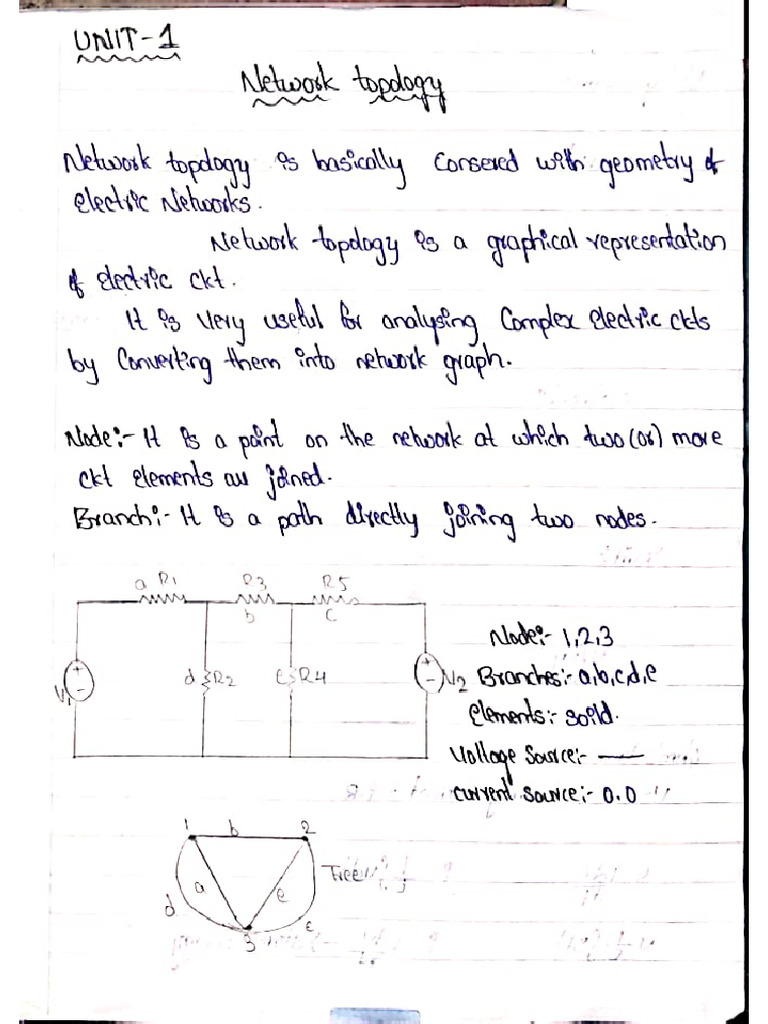 UNIT-1
Network topology
Network topology is basically consered with geometry of
electric Networks.
Network topology is a graphical representation
of electric ckt.
It is very useful for analysing Complex electric ckts
by Converting them into network graph.
Node:- It is a point on the network at which two (or) more
ckt elements are joined.
Branch:- It is a path directly joining two nodes.
a R1 R3 R5
b c
V1 d R2 e R4 V2
Node:- 1,2,3
Branches:- a,b,c,d,e
Elements:- soild.
Voltage Source:- —
current source:- 0.0
1 b 2
Tree
a e
d c
3